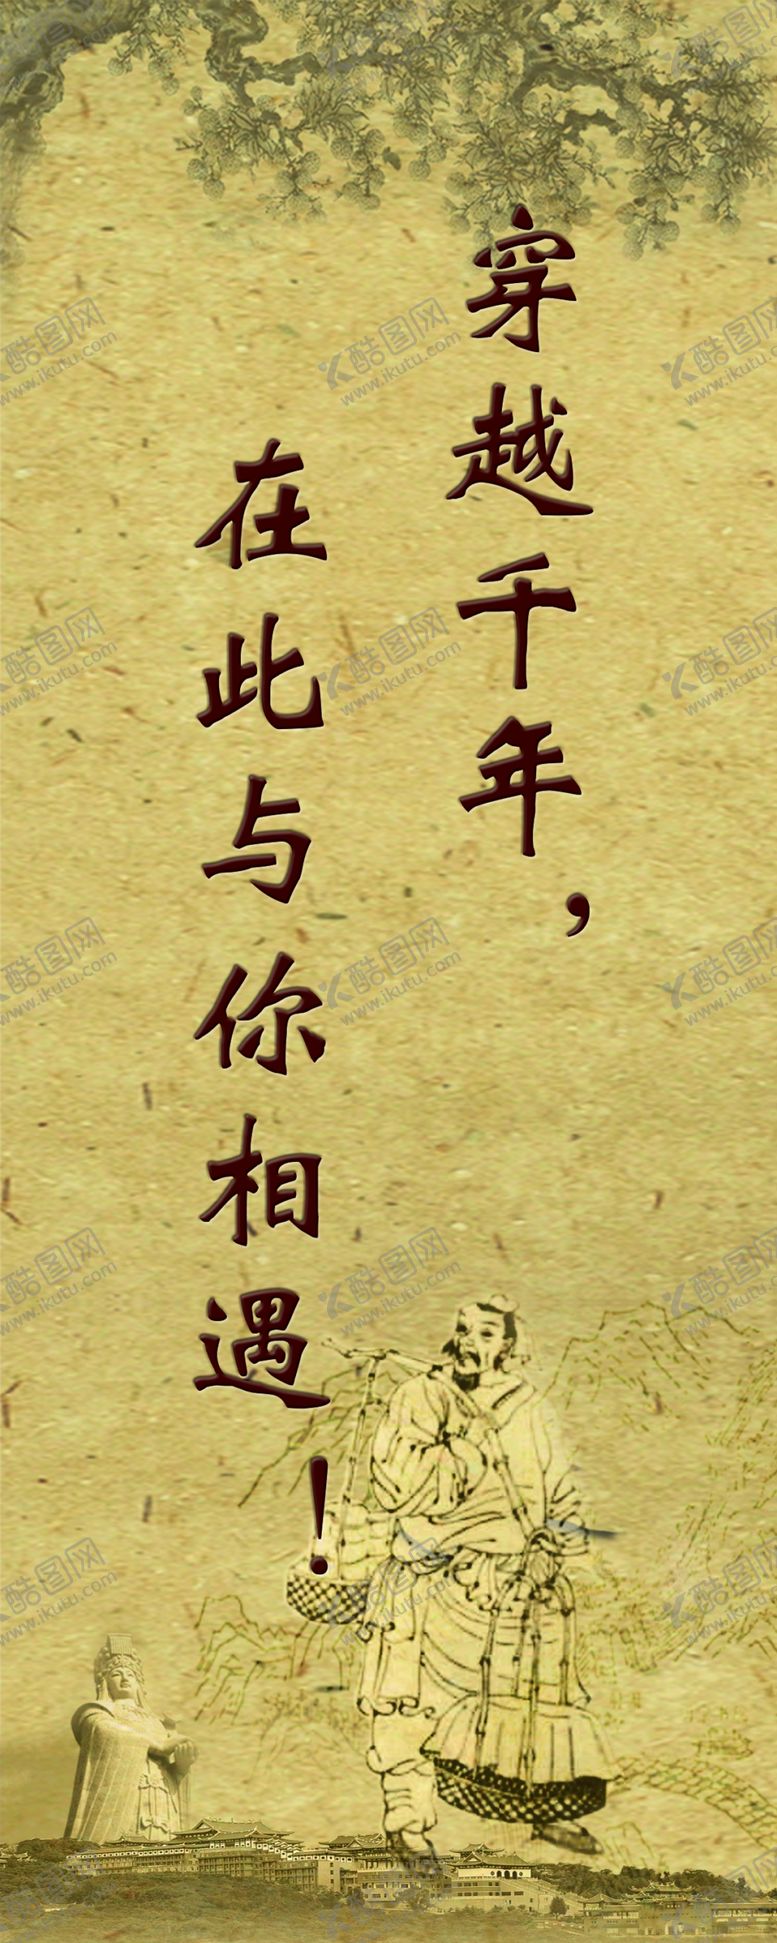 穿越千年，
在此与你相遇！
酷图网
www.ikutu.com